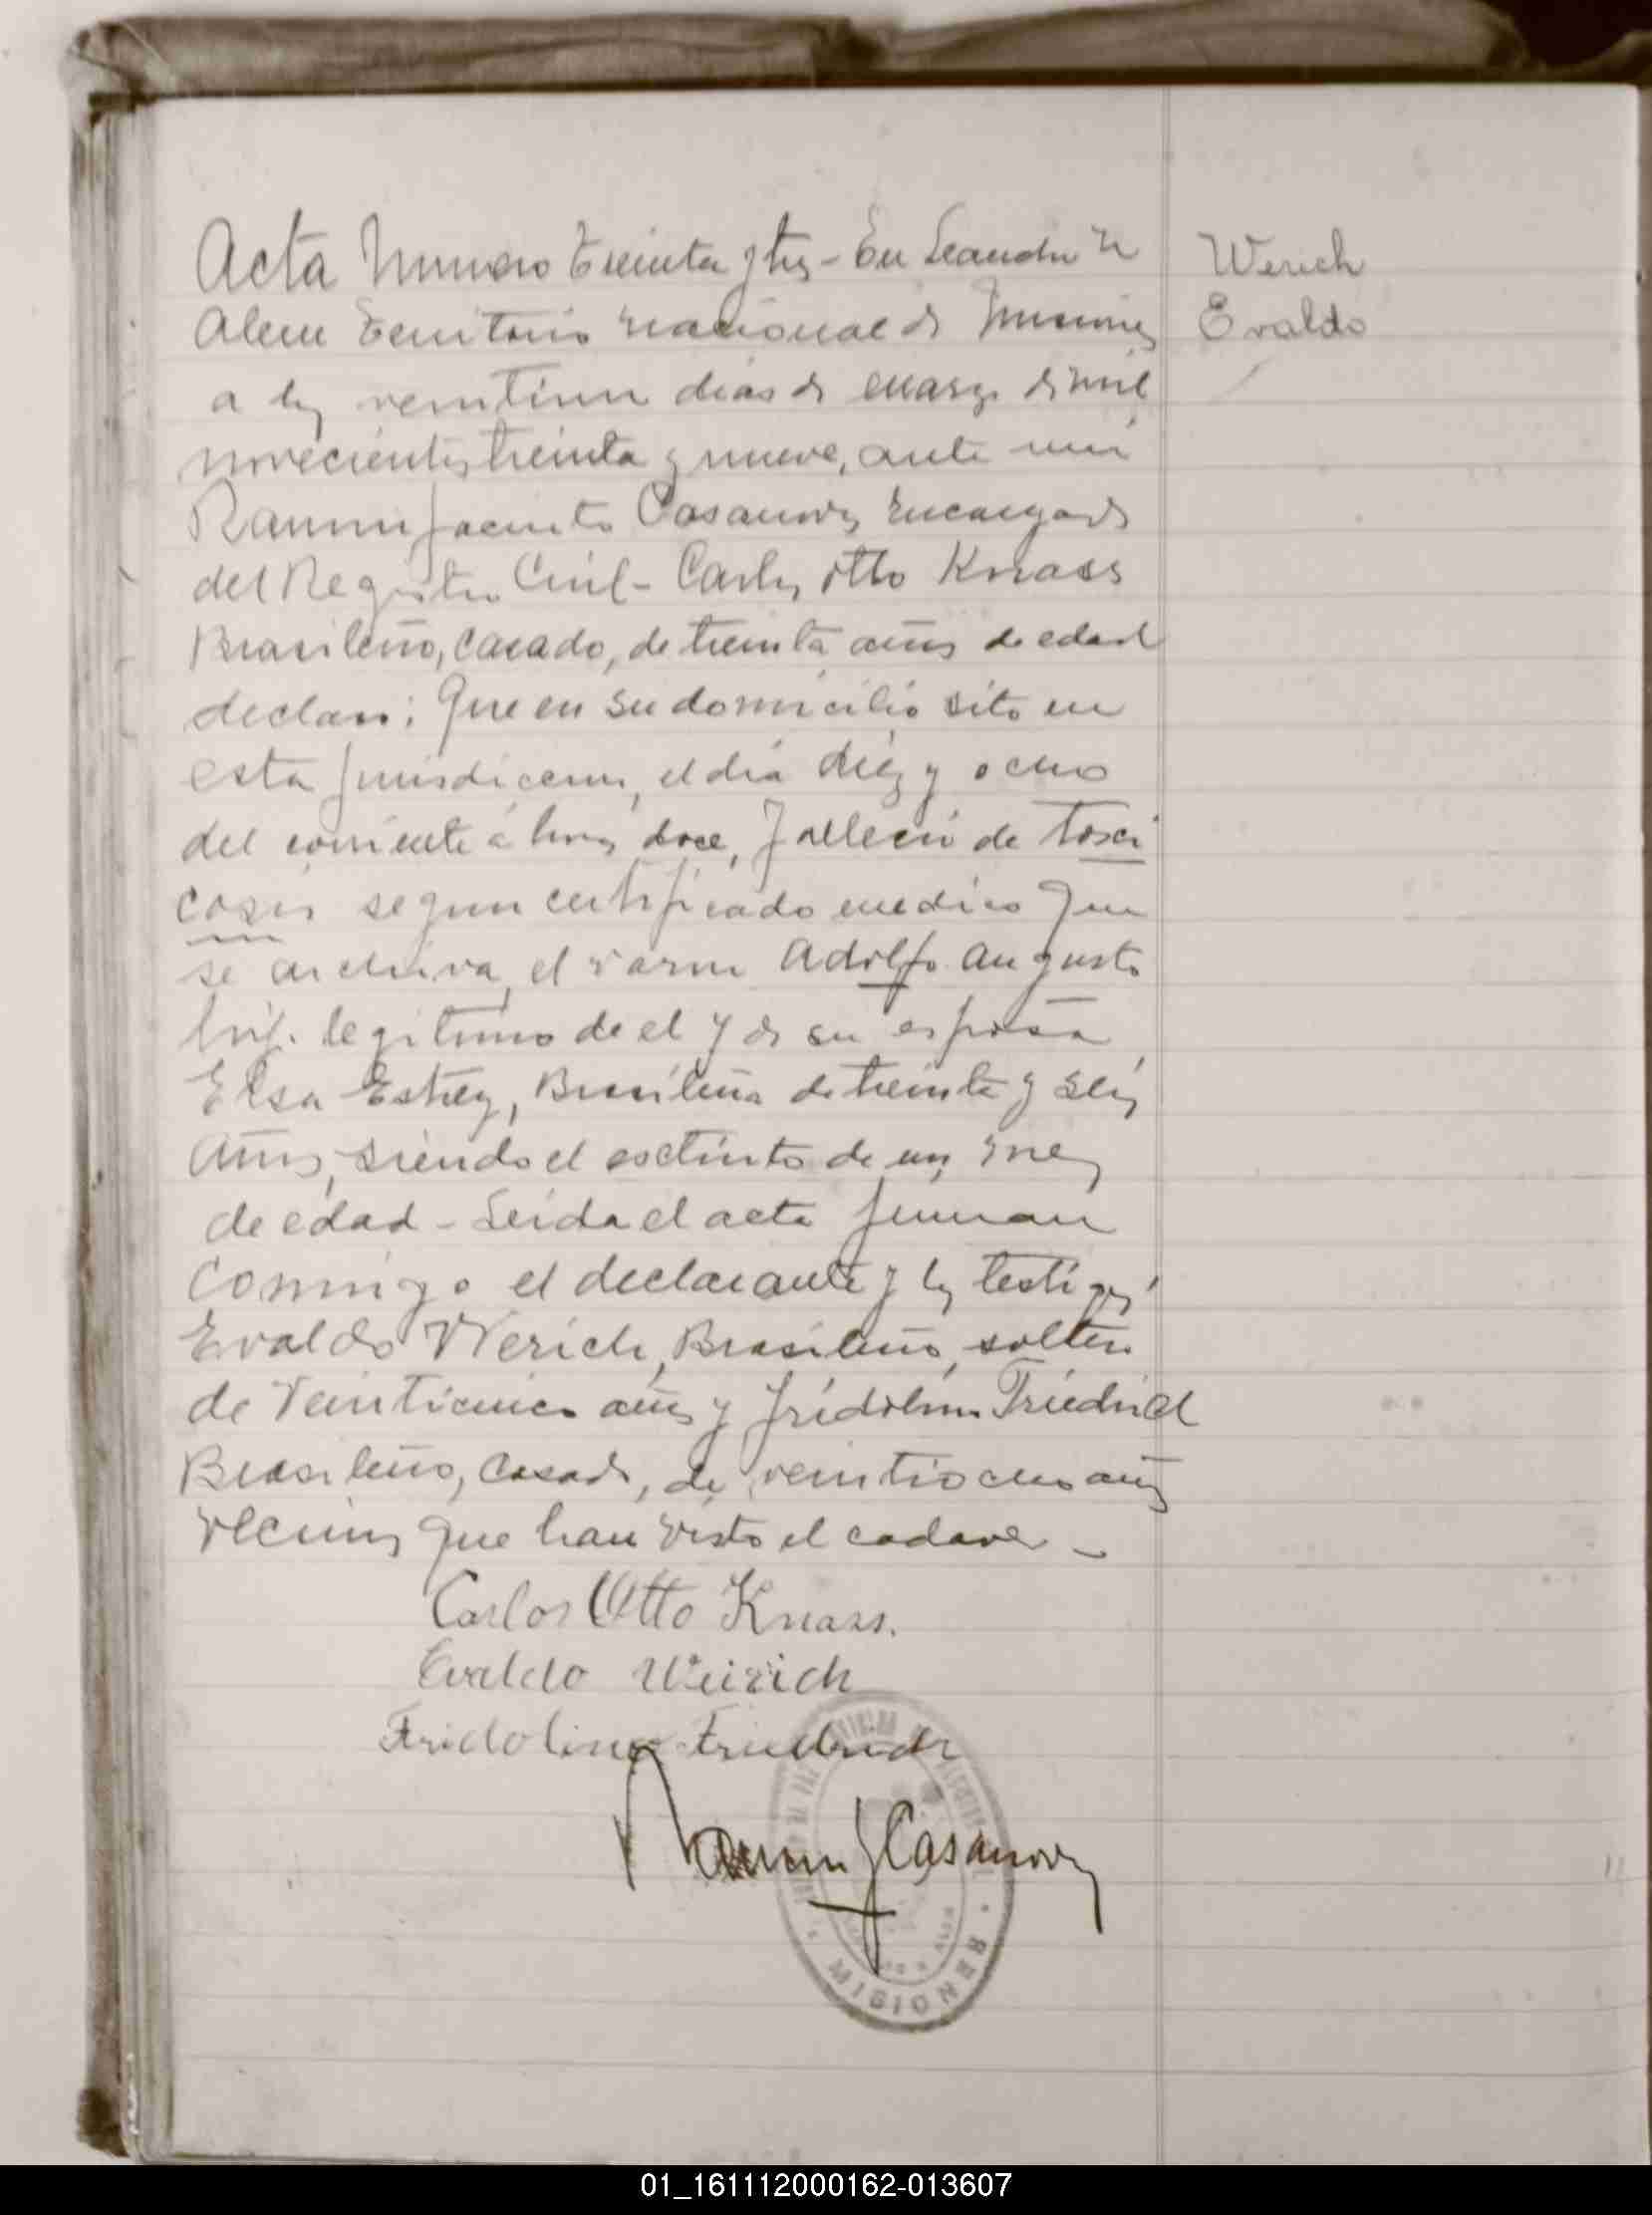 Acta Numero Treinta y tres - En Leandro N
Alem Territorio Nacional de Misiones
a los veintiun dias de marzo de mil
novecientos treinta y nueve, ante mi
Ramon Jacinto Casanova, Encargado
del Registro Civil - Carlos Otto Knass
Brasileño, Casado, de treinta años de edad
declaro: Que en su domicilio sito en
esta Jurisdiccion, el dia diez y ocho
del corriente a horas doce, fallecio de toxi
cosis segun certificado medico que
se archiva, el varon Adolfo Augusto
hijo legitimo de el y de su esposa
Elsa Estrey, Brasileña de treinta y seis
años, siendo el esctinto de un mes
de edad - Leida el acta firman
Conmigo el declarante y los testigos
Evaldo Werich, Brasileño, soltero
de Veinticinco años y Fridolino Friedrich
Brasileño, Casado, de veintiocho años
vecinos que han visto el cadaver -
Carlos Otto Knass.
Evaldo Weirich
Fridolino Friedrich
Ramon J Casanova
MISIONES
Werich
Evaldo
01_161112000162-013607